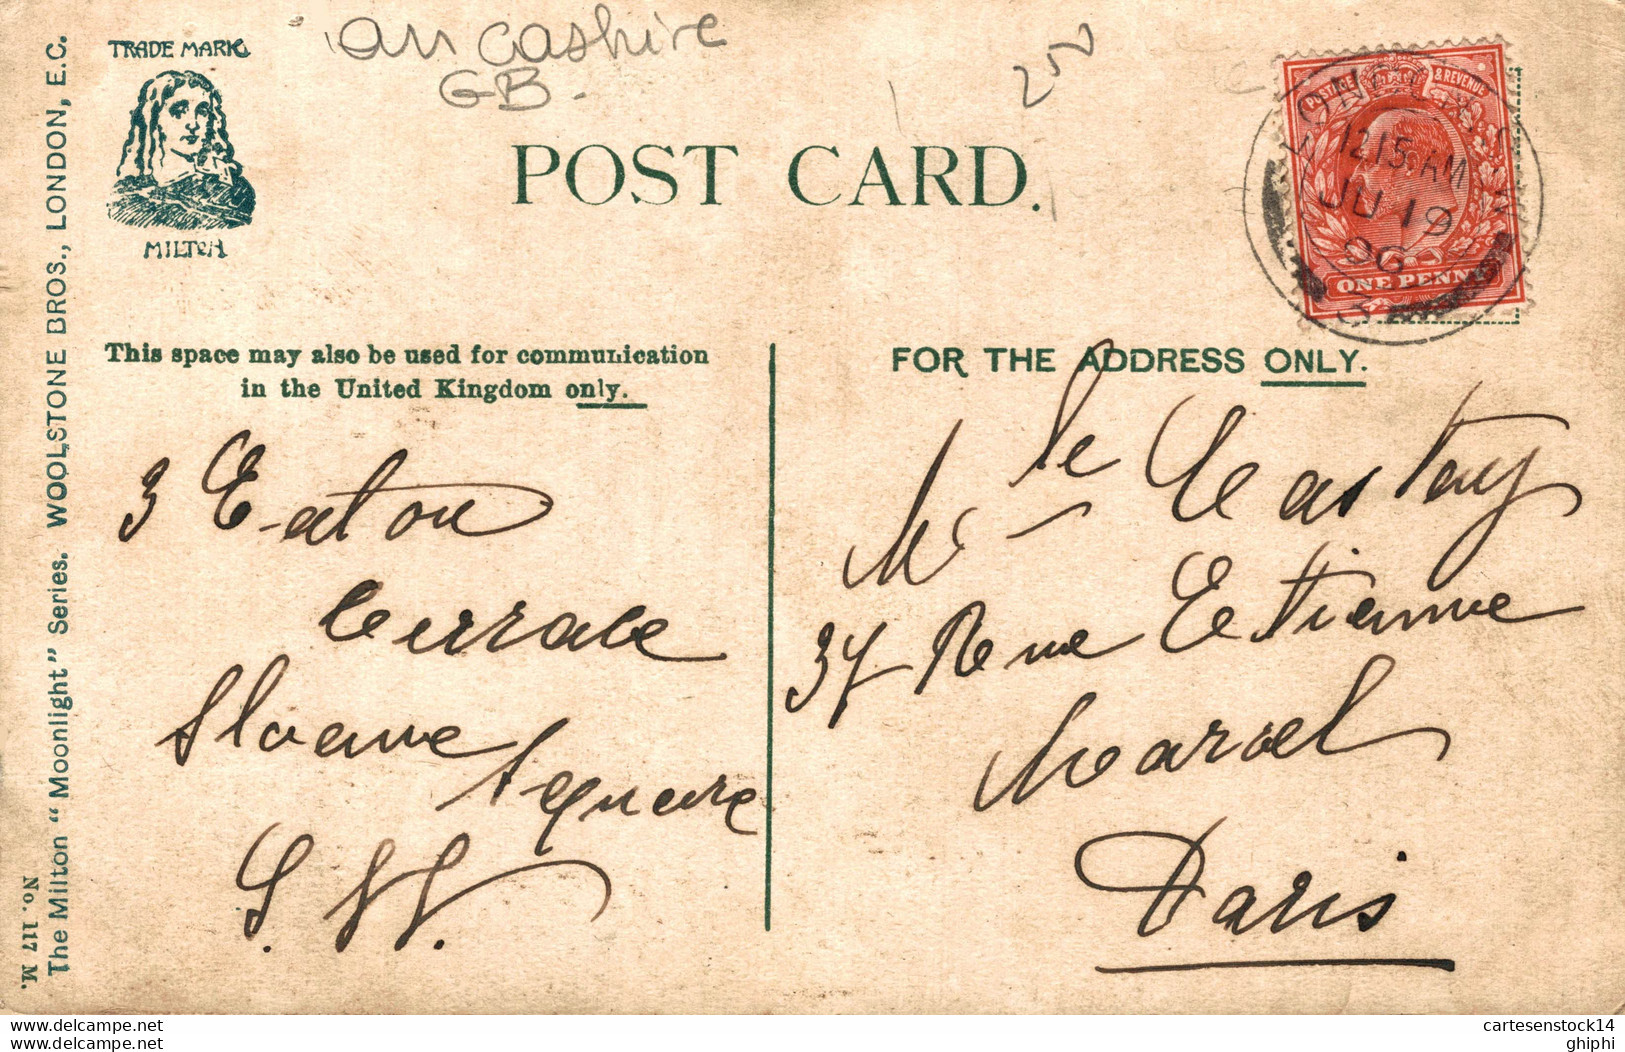 ancashire
GB.
200
TRADE MARK
MILTON
POST CARD.
POSTAGE & REVENUE
ONE PENNY
LONDON S.W
12.15 AM
JU 19
06
3
This space may also be used for communication
in the United Kingdom only.
FOR THE ADDRESS ONLY.
3 Eaton
terrace
Sloane
Square
S. W.
Mlle
37 Rue Etienne
Marcel
Paris
The Milton "Moonlight" Series. WOOLSTONE BROS., LONDON, E.C.
No. 117 M.
www.delcampe.net
cartesenstock14
ghiphi